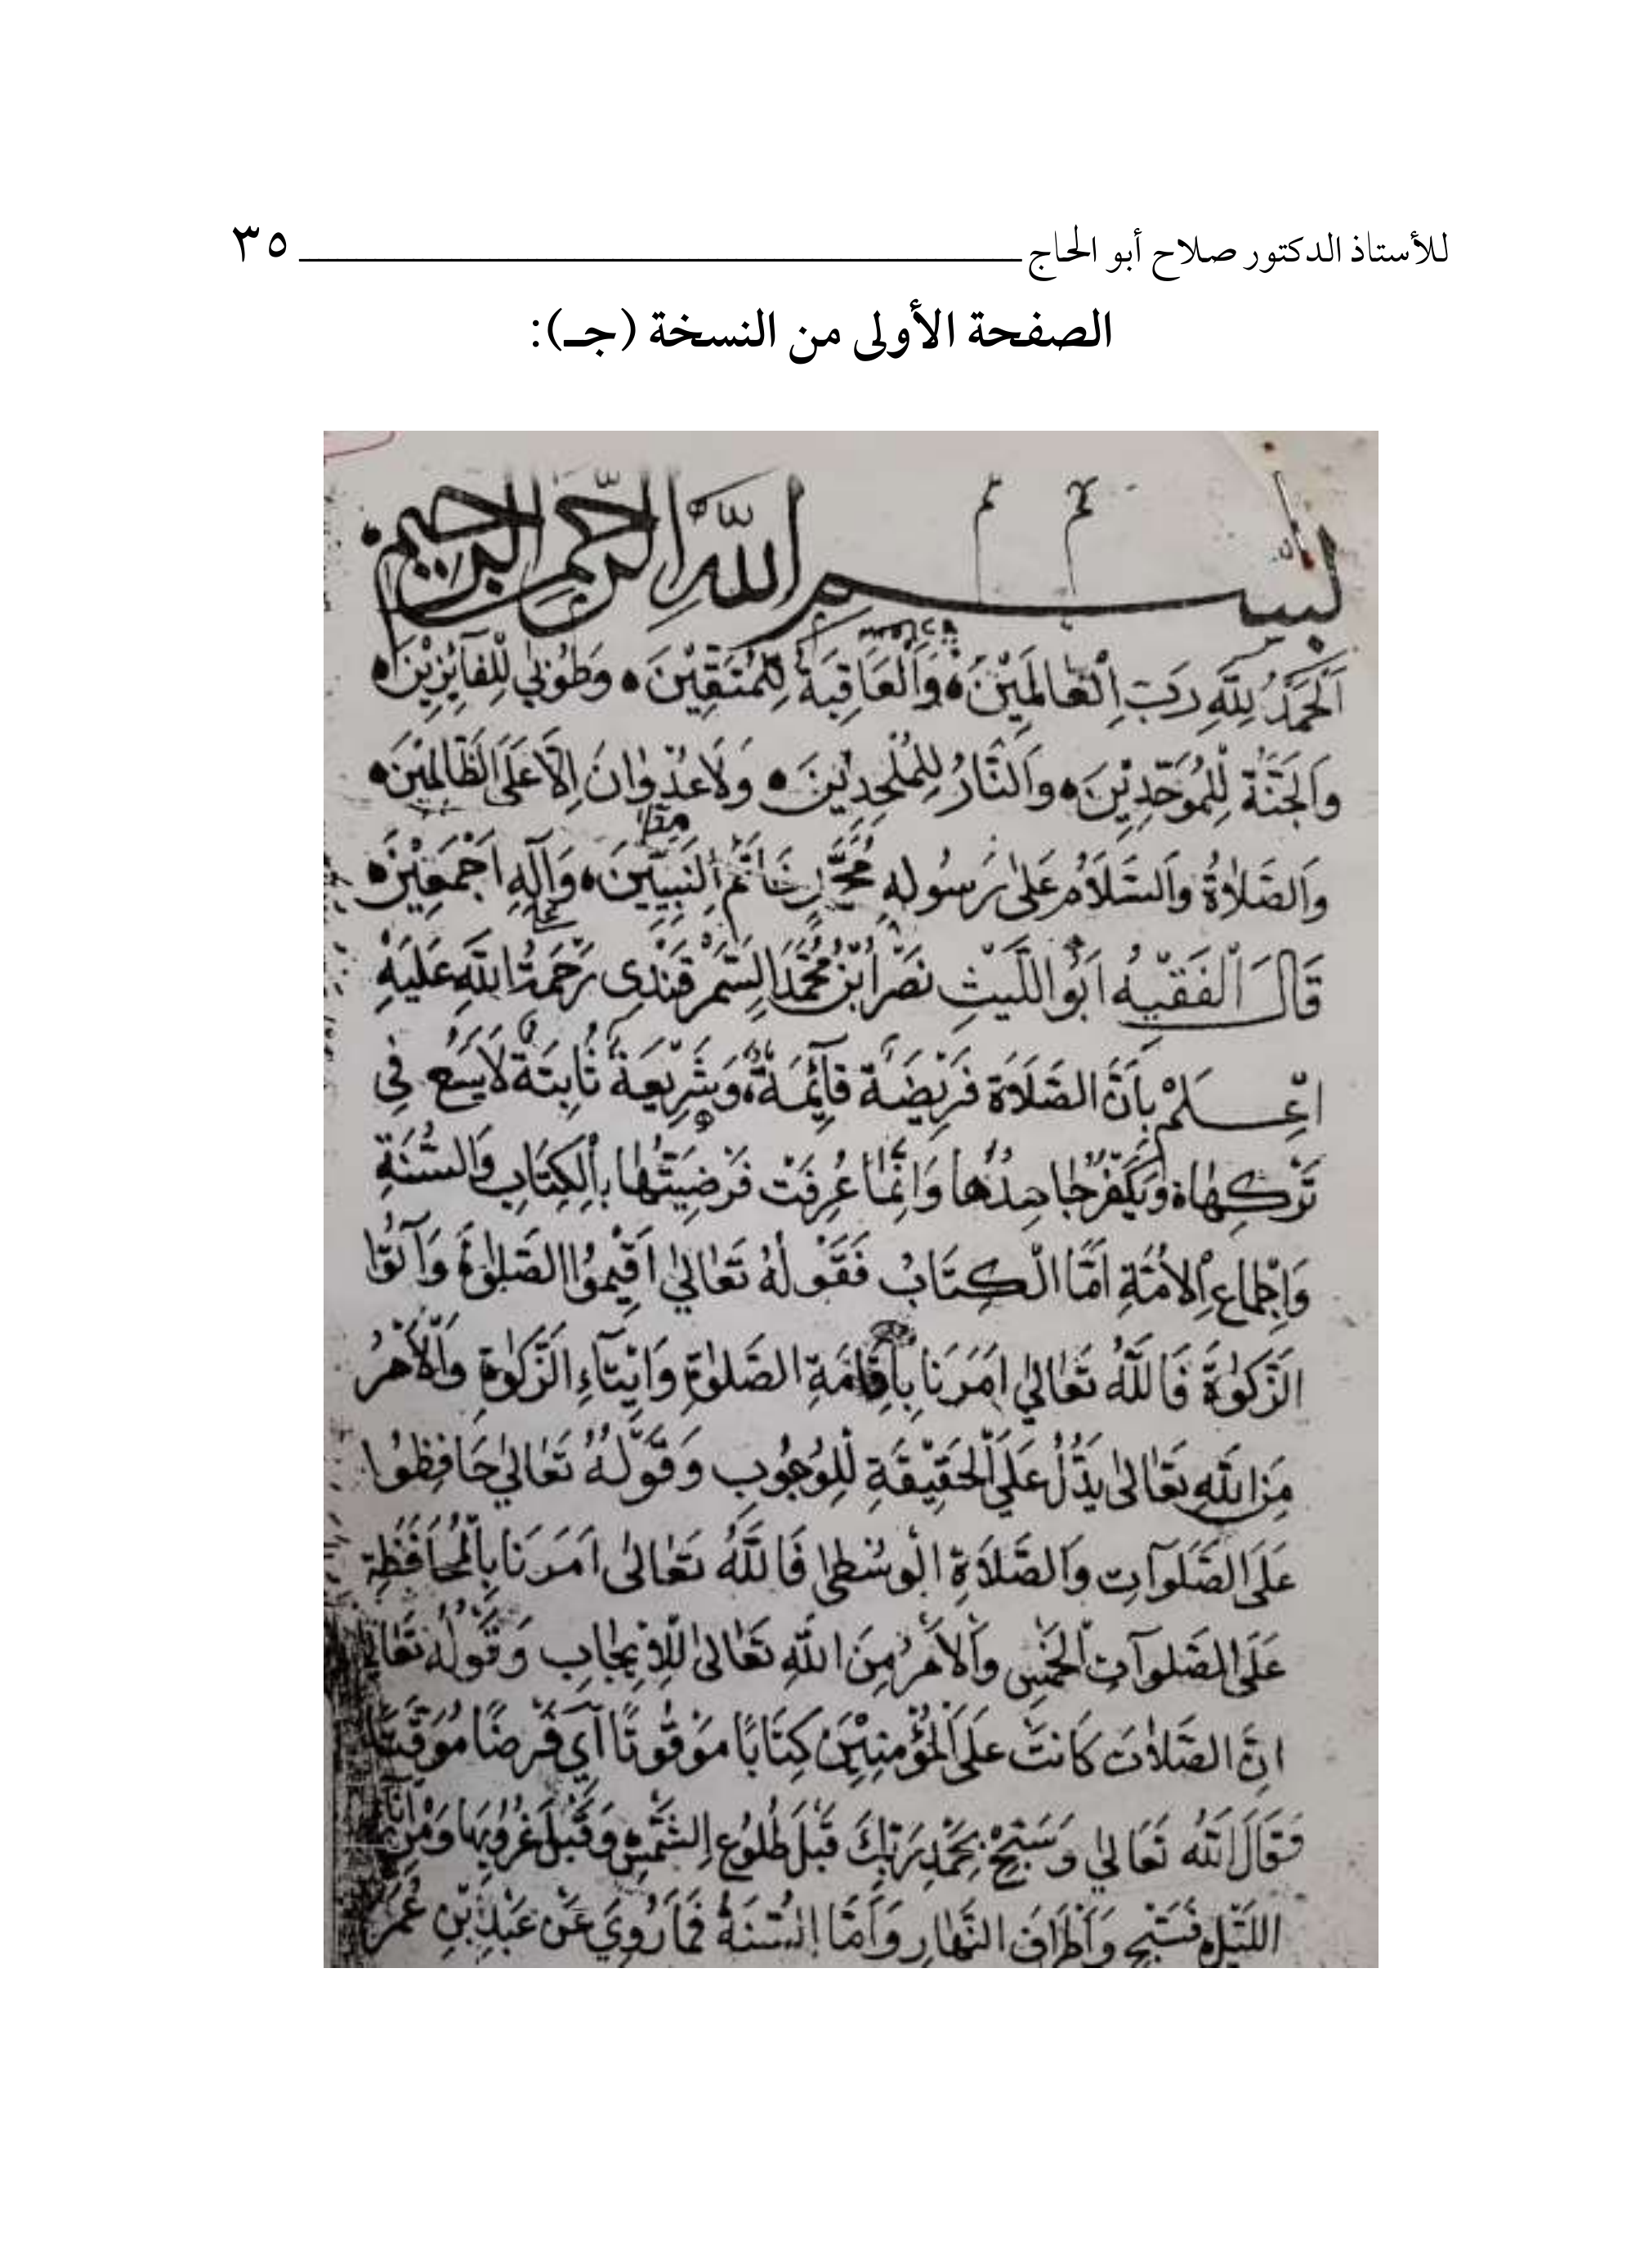 للأستاذ الدكتور صلاح أبو الحاج ٣٥
الصفحة الأولى من النسخة (جـ):
بسم الله الرحمن الرحيم
اَلْحَمْدُ لِلّٰهِ رَبِّ الْعَالَمِيْنَ وَالْعَاقِبَةُ لِلْمُتَّقِيْنَ وَطُوْبٰى لِلْفَآئِزِيْنَ
وَالْجَنَّةُ لِلْمُوَحِّدِيْنَ وَالنَّارُ لِلْمُلْحِدِيْنَ وَلَا عُدْوَانَ اِلَّا عَلَى الظَّالِمِيْنَ
وَالصَّلَاةُ وَالسَّلَامُ عَلٰى رَسُولِهِ مُحَمَّدٍ خَاتَمِ النَّبِيِّيْنَ وَآلِهِ اَجْمَعِيْنَ
قَالَ الْفَقِيْهُ اَبُو اللَّيْثِ نَصْرُ ابْنُ مُحَمَّدِ السَّمَرْقَنْدِى رَحْمَتُ اللهِ عَلَيْهِ
اِعْلَمْ بِاَنَّ الصَّلَاةَ فَرِيْضَةٌ قَآئِمَةٌ وَشَرِيْعَةٌ ثَابِتَةٌ لَا يَسَعُ فِي
تَرْكِهَا وَيَكْفُرُ جَاحِدُهَا وَاِنَّمَا عُرِفَتْ فَرْضِيَّتُهَا بِالْكِتَابِ وَالسُّنَّةِ
وَاِجْمَاعِ الْاُمَّةِ اَمَّا الْكِتَابُ فَقَوْلُهُ تَعَالٰي اَقِيْمُوا الصَّلٰوةَ وَآتُوْا
الزَّكٰوةَ فَاللّٰهُ تَعَالٰي اَمَرَنَا بِاِقَامَةِ الصَّلٰوةِ وَاِيْتَآءِ الزَّكٰوةِ وَالْاَمْرُ
مِنَ اللهِ تَعَالٰى يَدُلُّ عَلَى الْحَقِيْقَةِ لِلْوُجُوبِ وَقَوْلُهُ تَعَالٰي حَافِظُوا
عَلَى الصَّلَوَاتِ وَالصَّلَاةِ الْوُسْطٰى فَاللّٰهُ تَعَالٰى اَمَرَنَا بِالْمُحَافَظَةِ
عَلَى الصَّلَوَاتِ الْخَمْسِ وَالْاَمْرُ مِنَ اللهِ تَعَالٰى لِلْاِيْجَابِ وَقَوْلُهُ تَعَالٰي
اِنَّ الصَّلَاتَ كَانَتْ عَلَى الْمُؤْمِنِيْنَ كِتَابًا مَوْقُوتًا اَيْ فَرْضًا مُوَقَّتًا
وَقَالَ اللهُ تَعَالٰي وَسَبِّحْ بِحَمْدِ رَبِّكَ قَبْلَ طُلُوْعِ الشَّمْسِ وَقَبْلَ غُرُوْبِهَا وَمِنْ آنَآئِ
اللَّيْلِ فَسَبِّحْ وَاَطْرَافَ النَّهَارِ وَاَمَّا السُّنَّةُ فَمَا رُوِيَ عَنْ عَبْدِ بْنِ عُمَرَ